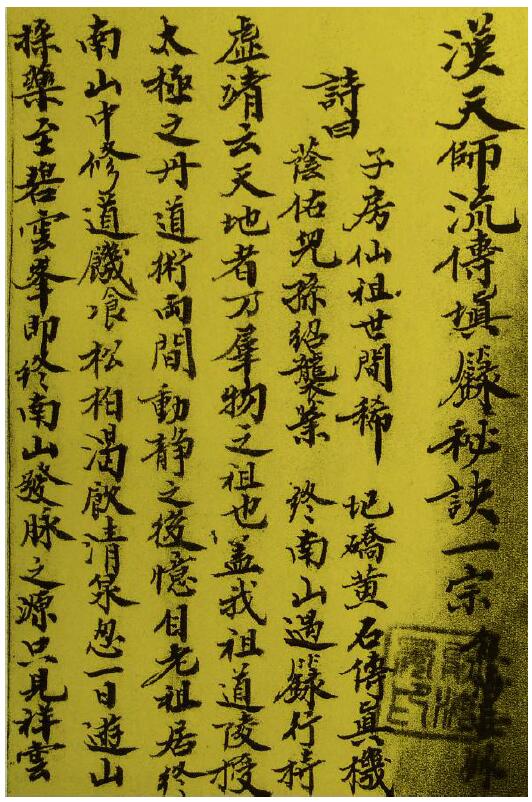 漢天師流傳填籙秘訣一宗
詩曰
子房仙祖世間稀 圯礄黄石傳眞機
蔭佑兒孫紹襲業 终南山遇籙行持
虚清云天地者万羣物之祖也盖我祖道陵授
太極之丹道術両間動静之後憶自老祖居终
南山中修道饑飡松柏渴飲清泉忽一日遊山
採藥至碧雲峯即终南山發脉之源只見祥雲